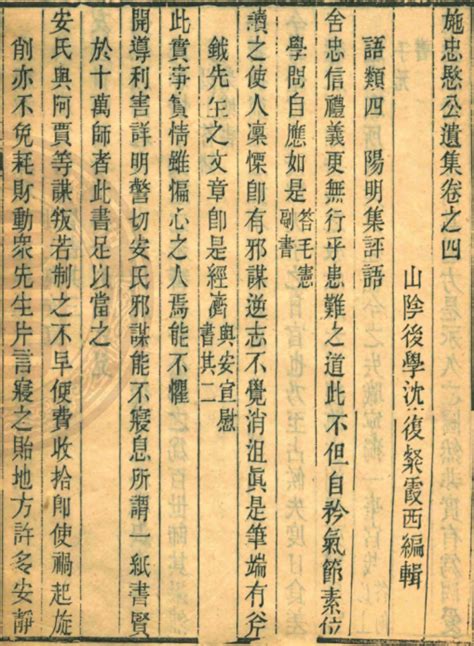 施忠愍公遺集卷之四
山陰後學沈復粲霞西編輯
語類四 陽明集評語
舍忠信禮義更無行乎患難之道此不但自矜氣節素位
學問自應如是答毛憲副書
讀之使人凜慄卽有邪謀逆志不覺消沮眞是筆端有斧
鉞先生之文章卽是經濟與安宣慰書其二
此實事眞情雖偏心之人焉能不懼
開導利害詳明警切安氏邪謀能不寢息所謂一紙書賢
於十萬師者此書足以當之
安氏與阿賈等謀叛若制之不早便費收拾卽使禍起旋
削亦不免耗財動衆先生片言寢之貽地方許多安靜